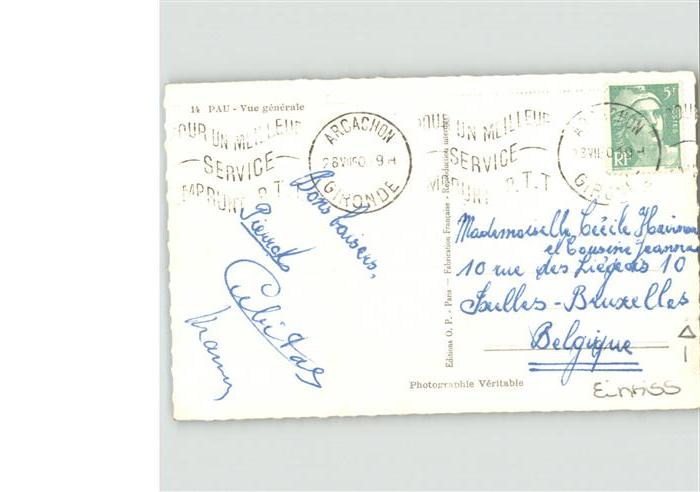 14 PAU - Vue générale
POUR UN MEILLEUR
SERVICE
EMPRUNT P.T.T
ARCACHON
28 VII 50 9-H
GIRONDE
POUR UN MEILLEUR
SERVICE
EMPRUNT P.T.T
ARCACHON
28 VII 50 19-H
GIRONDE
5F
POSTES
RF
Bons baisers,
Pierrot
Mademoiselle Cécile
et Cousine Jeanne
10 rue des Liégeois 10
Ixelles - Bruxelles
Belgique
Editions O. P. - Paris — Fabrication Française - Reproduction interdite
Photographie Véritable